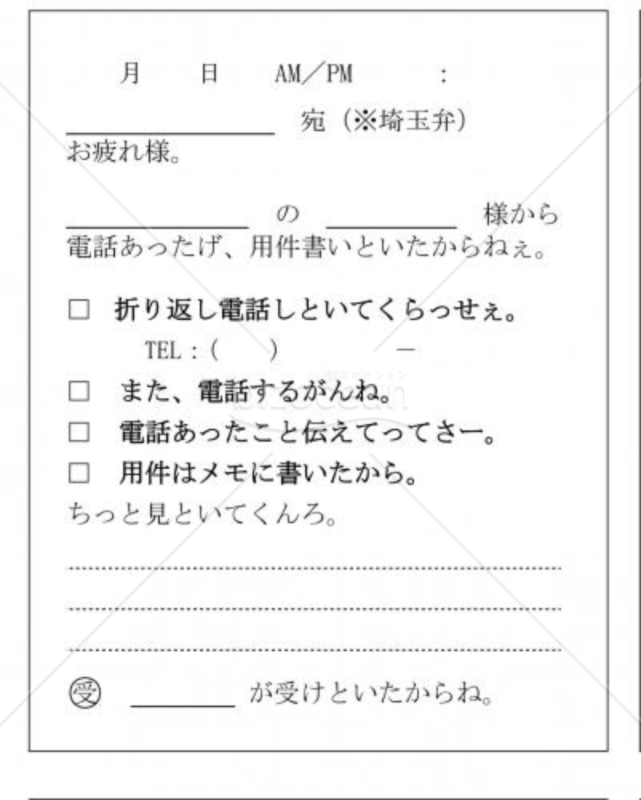 月 日 AM/PM :
＿＿＿＿＿＿＿＿ 宛（※埼玉弁）
お疲れ様。
＿＿＿＿＿＿＿ の ＿＿＿＿＿ 様から
電話あったげ、用件書いといたからねぇ。
□ 折り返し電話しといてくらっせぇ。
TEL：( ) －
□ また、電話するがんね。
□ 電話あったこと伝えてってさー。
□ 用件はメモに書いたから。
ちっと見といてくんろ。
㊌ ＿＿＿＿ が受けといたからね。